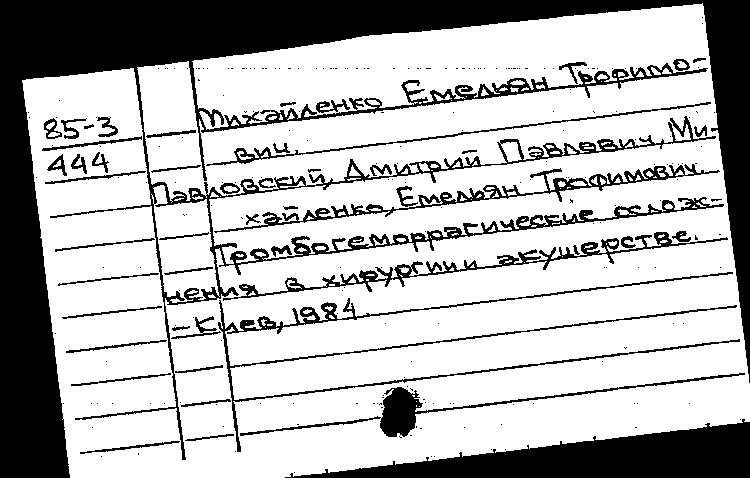 85-3
444
Михайленко Емельян Трофимо-
вич.
Павловский, Дмитрий Павлович, Ми-
хайленко, Емельян Трофимович.
Тромбогеморрагические ослож-
нения в хирургии и акушерстве.
– Киев, 1984.